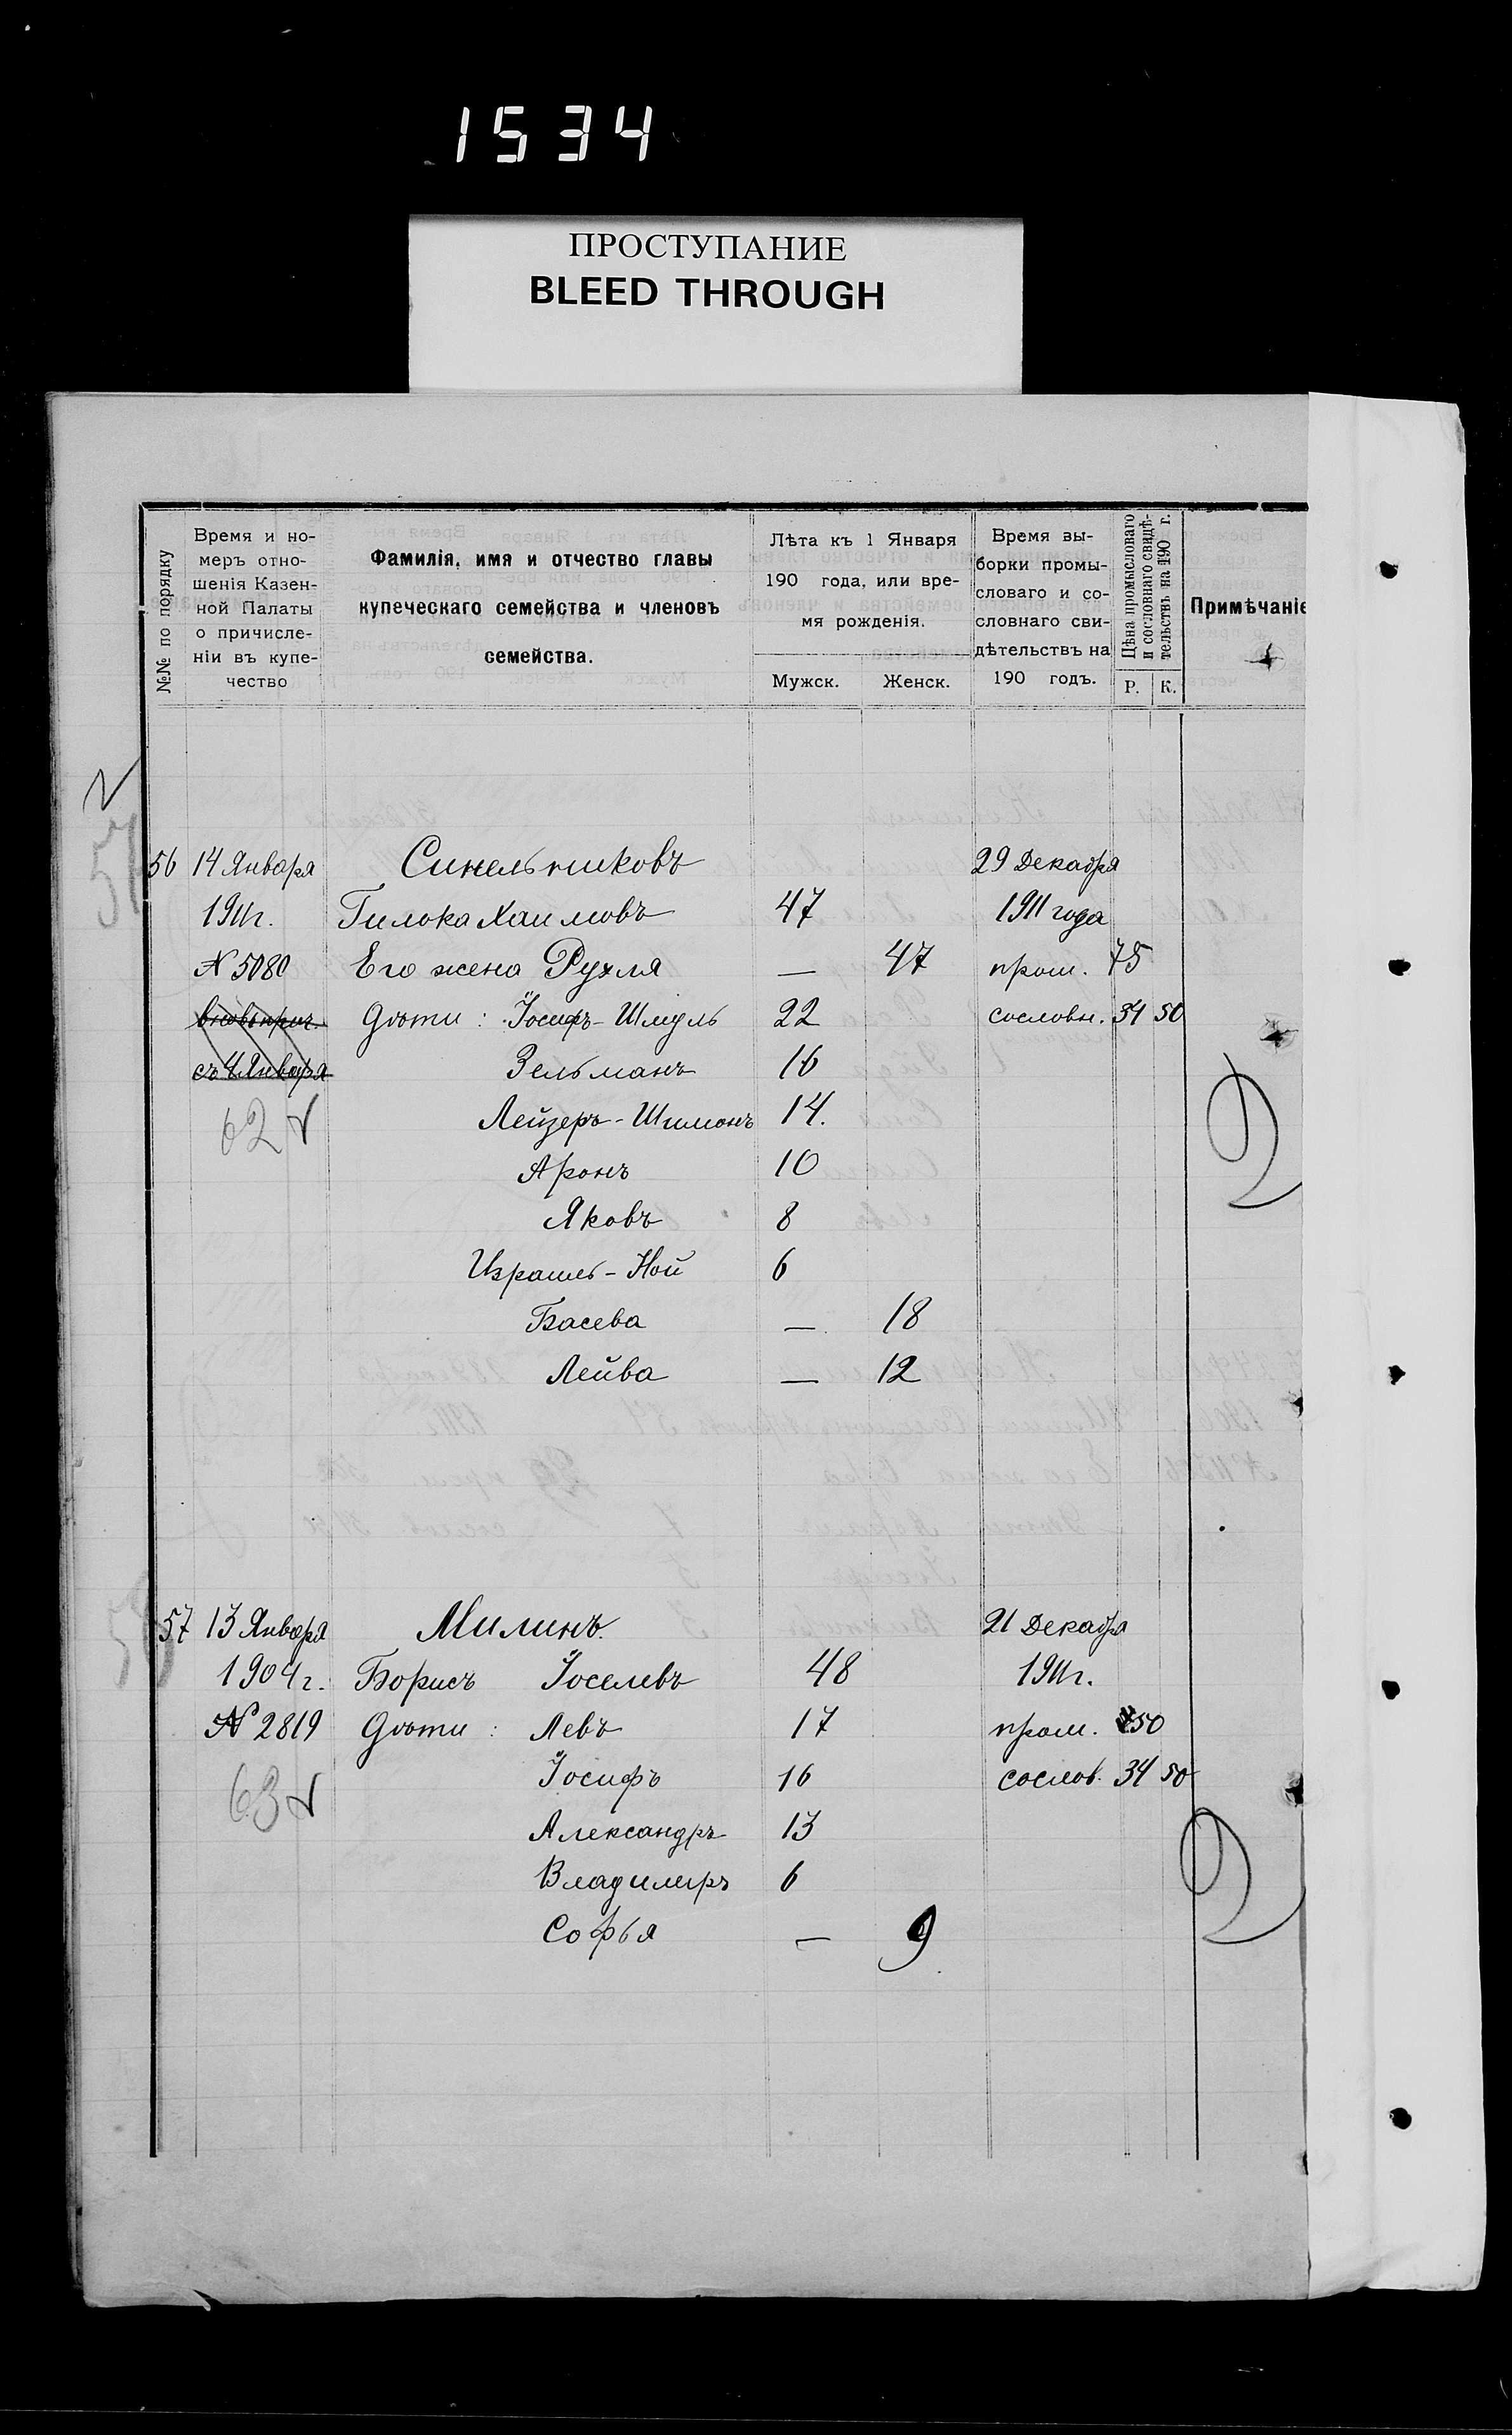 1534
ПРОСТУПАНИЕ
BLEED THROUGH
№№ по порядку
Время и но-
меръ отно-
шенія Казен-
ной Палаты
о причисле-
ніи въ купе-
чество
Фамилія, имя и отчество главы
купеческаго семейства и членовъ
семейства.
Лѣта къ 1 Января
190 года, или вре-
мя рожденія.
Мужск. Женск.
Время вы-
борки промы-
словаго и со-
словнаго сви-
дѣтельствъ на
190 годъ.
Цѣна промысловаго
и сословнаго свидѣ-
тельствъ на 190 г.
Р. К.
Примѣчаніе
56 14 Января Синельниковъ 29 Декабря
1911г. Гилока Хаимовъ 47 1911 года
№ 5080 Его жена Рухля — 47 пром. 75
вновь прич. Дѣти: Іосифъ-Шмуль 22 сословн. 34 50
съ Января Зельманъ 16
62 Лейзеръ-Шимонъ 14.
Аронъ 10
Яковъ 8
Израиль-Ной 6
Басева — 18
Лейва — 12
57 13 Января Милинъ. 21 Декабря
1904г. Борисъ Іоселевъ 48 1911г.
№ 2819 Дѣти: Левъ 17 пром. 50
63 Іосифъ 16 сослов. 34 50
Александръ 13
Владимиръ 6
Софья — 9